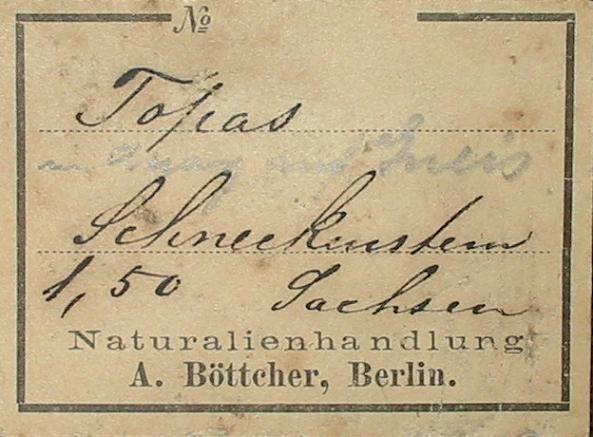 No
Topas
auf Gneis
Schneckenstein
1,50 Sachsen
Naturalienhandlung
A. Böttcher, Berlin.